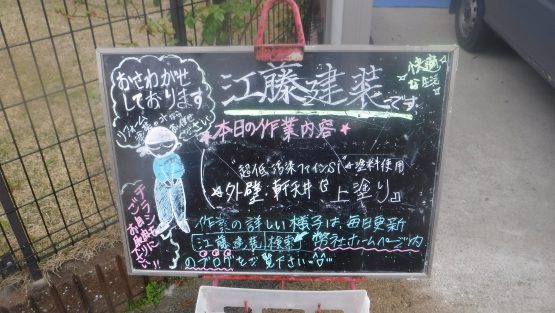 おさわがせ
しております
江藤建装です
快適
生活
★本日の作業内容★
"超低汚染ファインSi"塗料使用
☆外壁・軒天井『上塗り』
作業の詳しい様子は、毎日更新
江藤建装 検索 弊社ホームページ内
のブログをご覧下さい^^
チラシ
ご自由に
お取り下さい!!